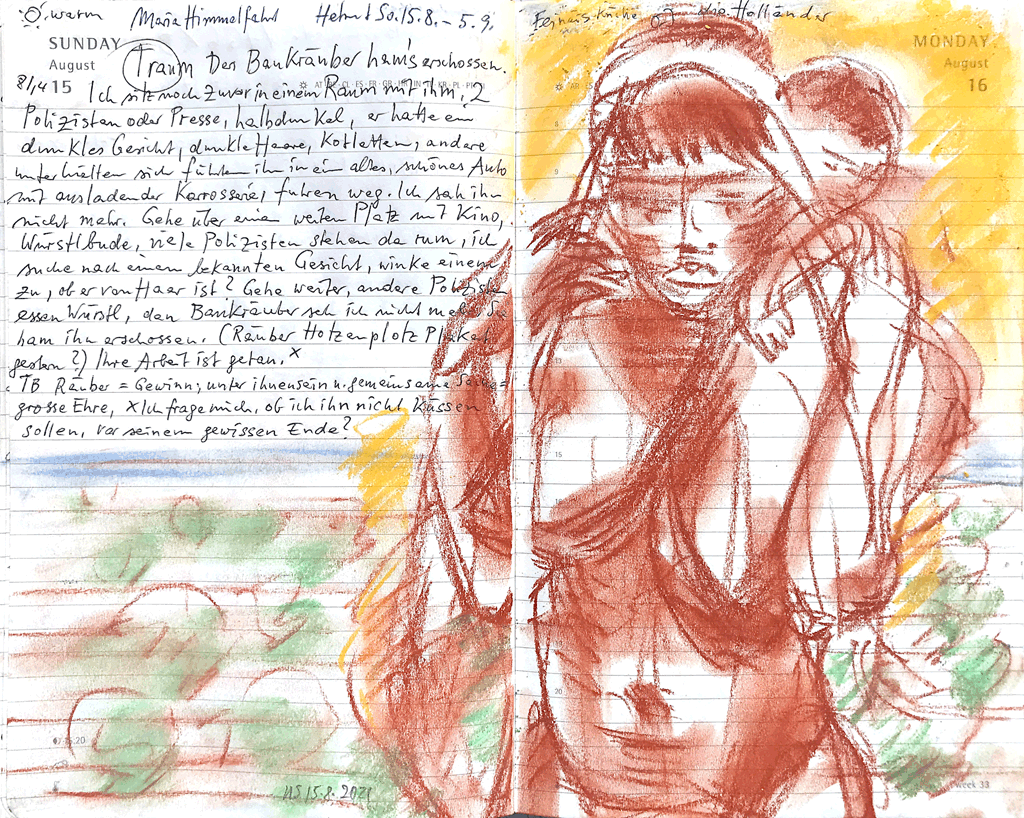 warm Maria Himmelfahrt Helmut So. 15.8. – 5.9.
SUNDAY
August
15
Traum Den Bankräuber ham's erschossen.
Ich sitz noch zuvor in einem Raum mit ihm, 2
Polizisten oder Presse, halbdunkel, er hatte ein
dunkles Gesicht, dunkle Haare, Kotletten, andere
unterhielten sich führten ihn in ein altes, schönes Auto
mit ausladender Karrosserie, fuhren weg. Ich sah ihn
nicht mehr. Gehe über einen weiten Platz mit Kino,
Würstlbude, viele Polizisten stehen da rum, ich
suche nach einem bekannten Gesicht, winke einem
zu, ob er von Haar ist? Gehe weiter, andere Polizisten
essen Würstl, den Bankräuber seh ich nicht mehr. Sie
ham ihn erschossen. (Räuber Hotzenplotz Plakat
gestern?) Ihre Arbeit ist getan. x
TB Räuber = Gewinn; unter ihnen sein u. gemeinsame Sache =
grosse Ehre, x Ich frage mich, ob ich ihn nicht küssen
sollen, vor seinem gewissen Ende?
07.05.20
15.8.2021
Holländer
MONDAY
August
16
8
9
15
20
week 33